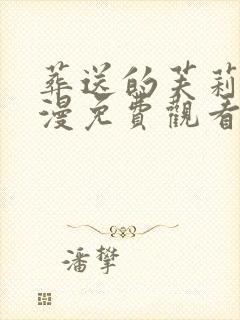 葬送的芙莉
漫免費觀看
潘攀